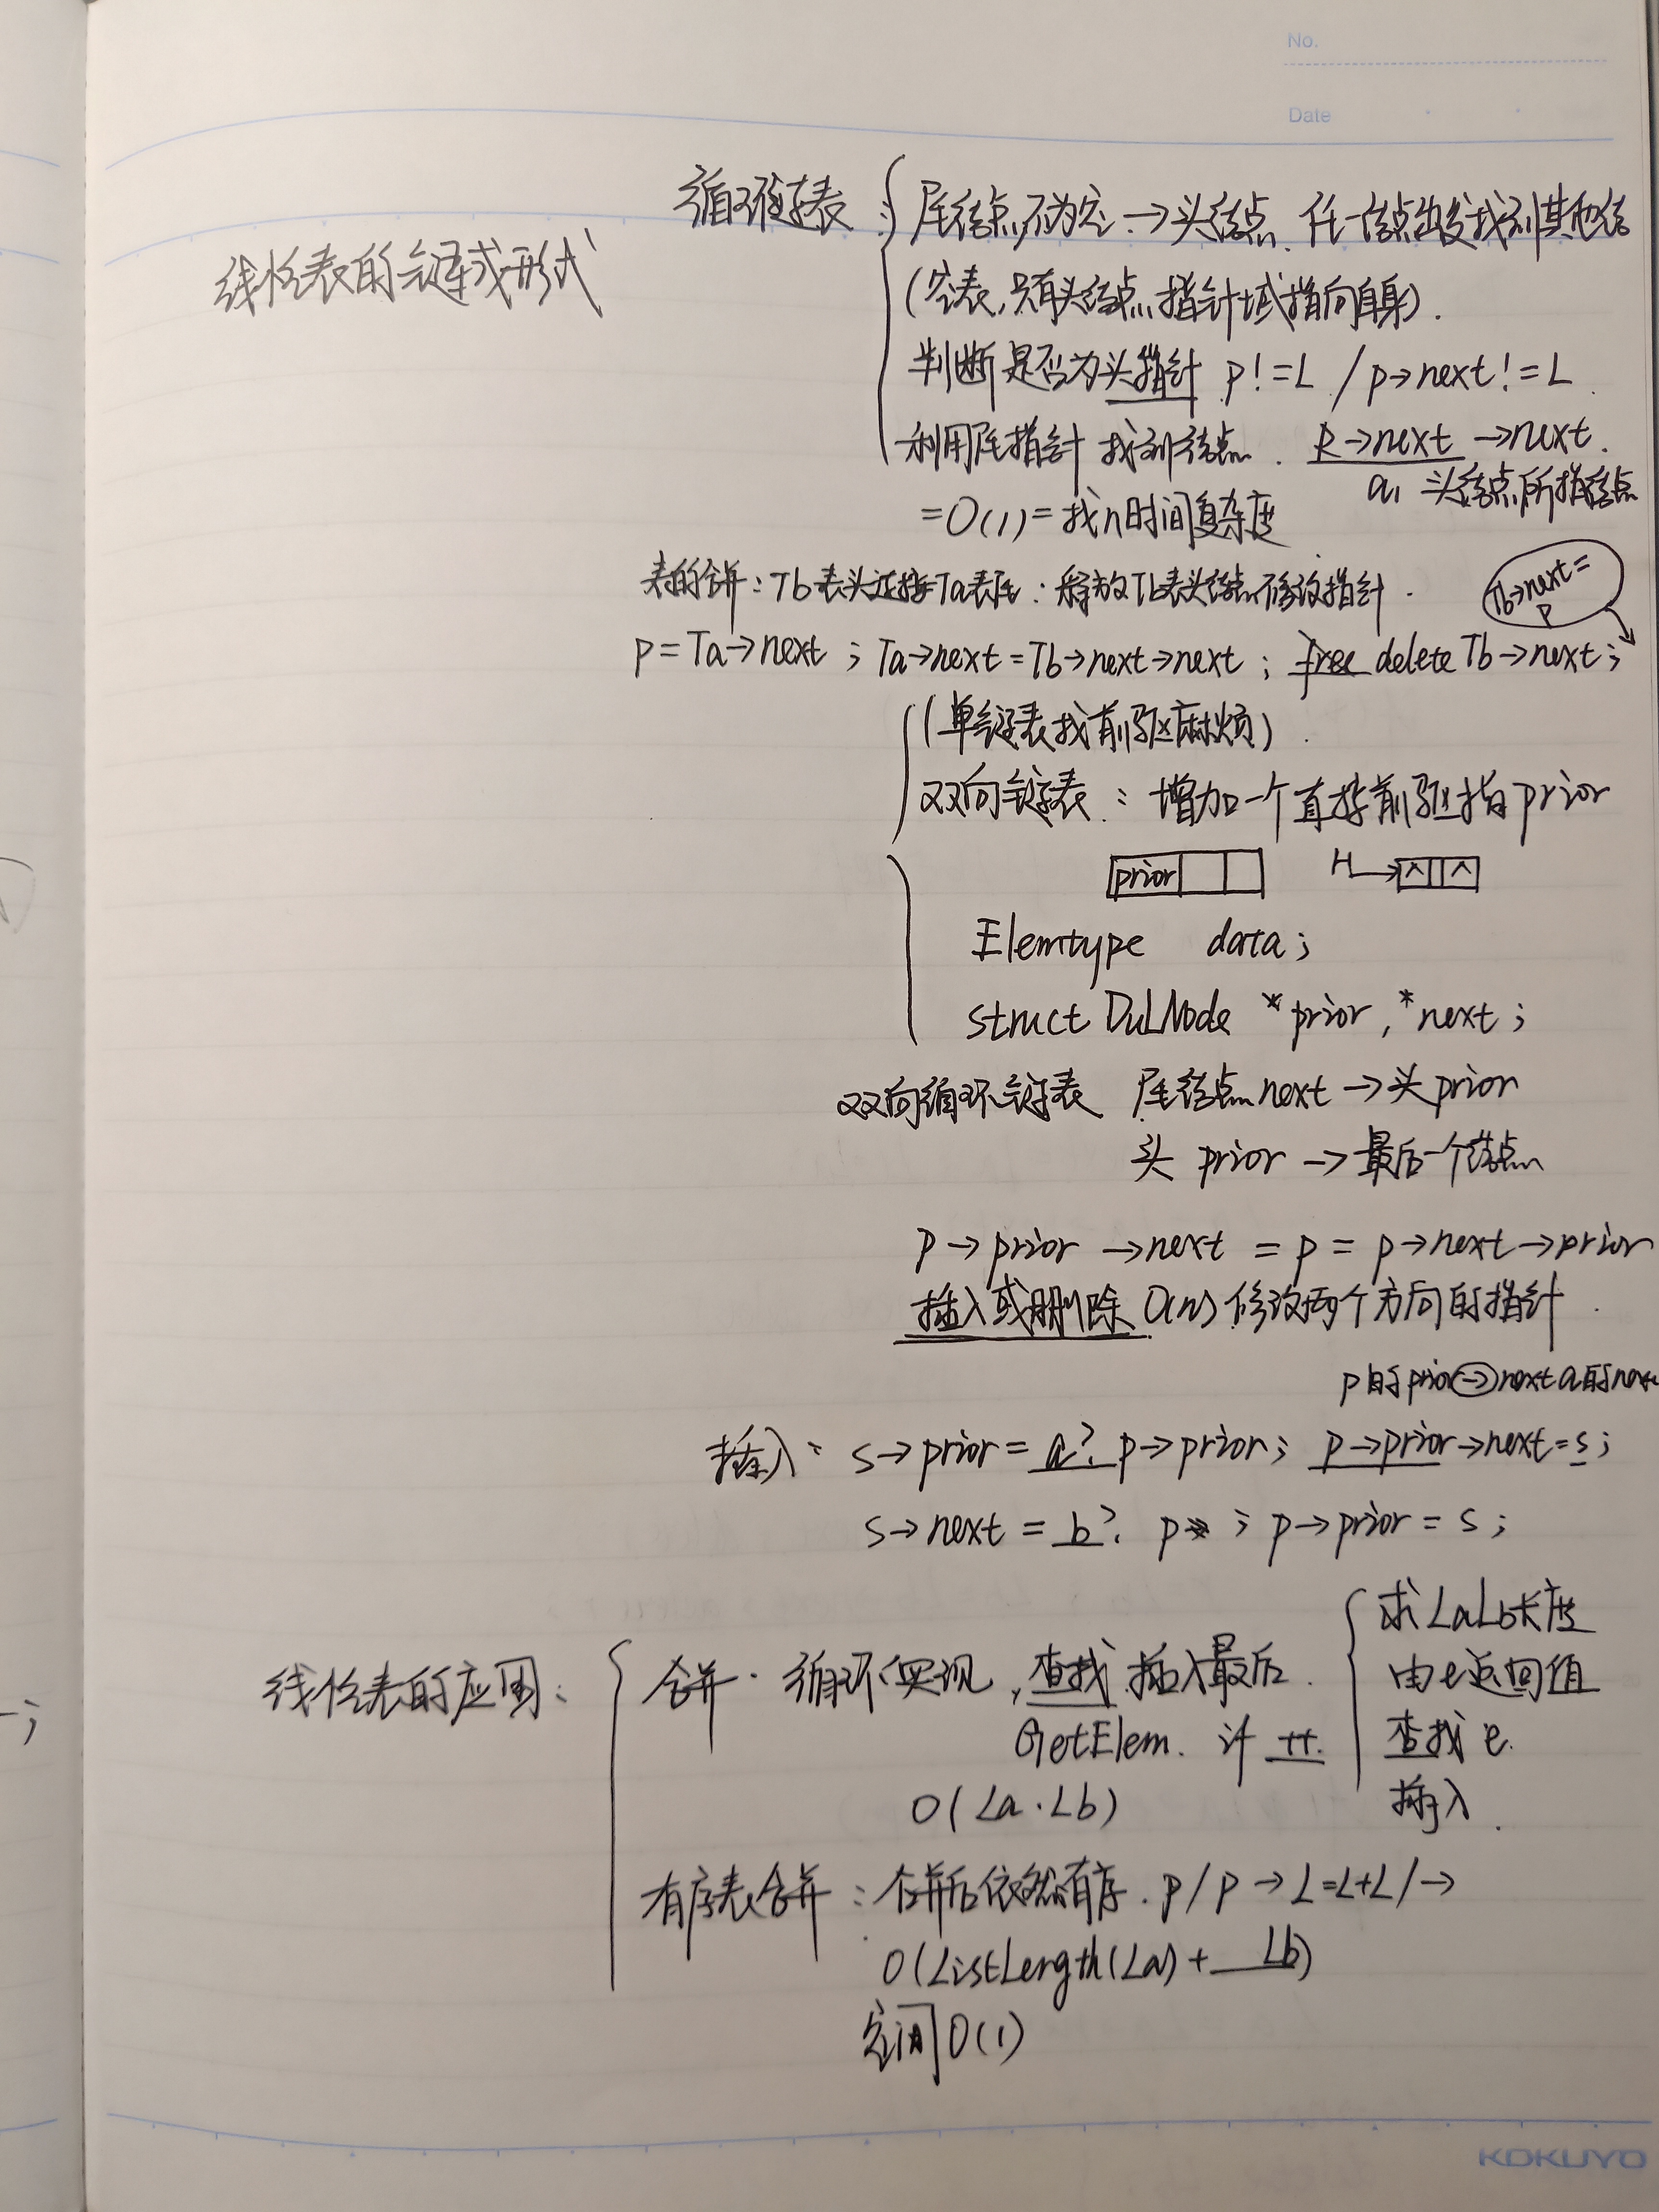 No.
Date
循环链表:
尾结点不为空→头结点. 任一结点出发找到其他结
线性表的链式形式
(空表,只有头结点指针域指向自身).
判断是否为头指针 p!=L / p→next!=L
利用尾指针找到结点. R→next→next.
a1 头结点所指结点
=O(1)=找n时间复杂度
表的合并:Tb表头连接Ta表尾:释放Tb表头结点修改指针.
Tb→next=
p
p=Ta→next; Ta→next=Tb→next→next; free delete Tb→next;
(单链表找前驱麻烦).
双向链表:增加一个直接前驱指prior
prior H→ ^ ^
Elemtype data;
struct DuLNode *prior,*next;
双向循环链表 尾结点next→头prior
头 prior→最后一个结点
p→prior→next = p = p→next→prior
插入或删除 O(n) 修改两个方向的指针.
p的prior→next a的next
插入: s→prior= a? p→prior; p→prior→next=s;
s→next = b? p ; p→prior = s;
线性表的应用:
合并. 循环实现,查找.插入最后.
GetElem. if ++.
O(La.Lb)
求LaLb长度
由e返回值
查找e.
插入.
有序表合并:合并后依然有序. p/p→L=L+L/→
O(ListLength(La)+ Lb)
空间O(1)
-;
KOKUYO